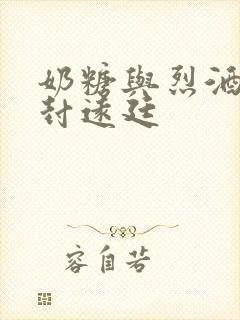 奶糖與烈酒
封遠廷
容自若